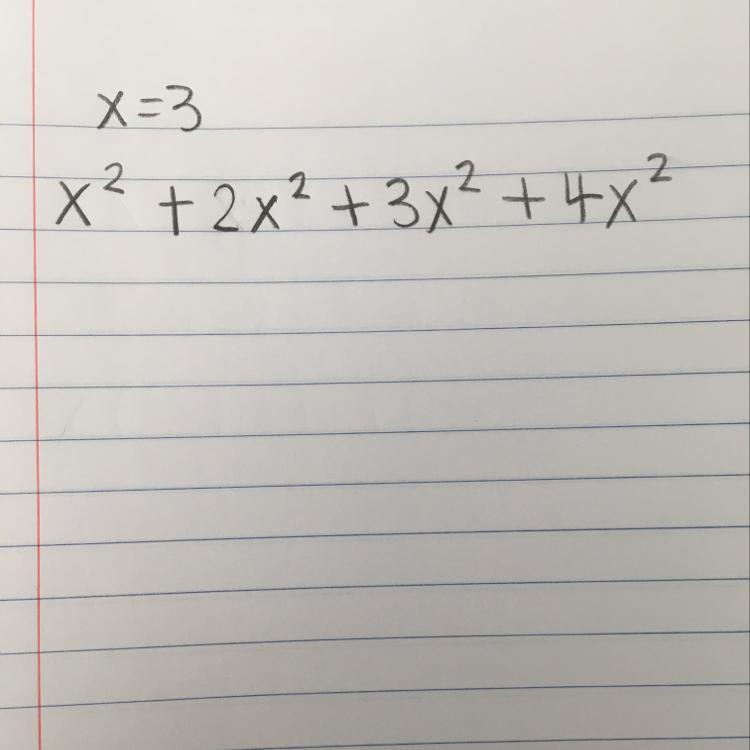 x=3
x² + 2x² + 3x² + 4x²